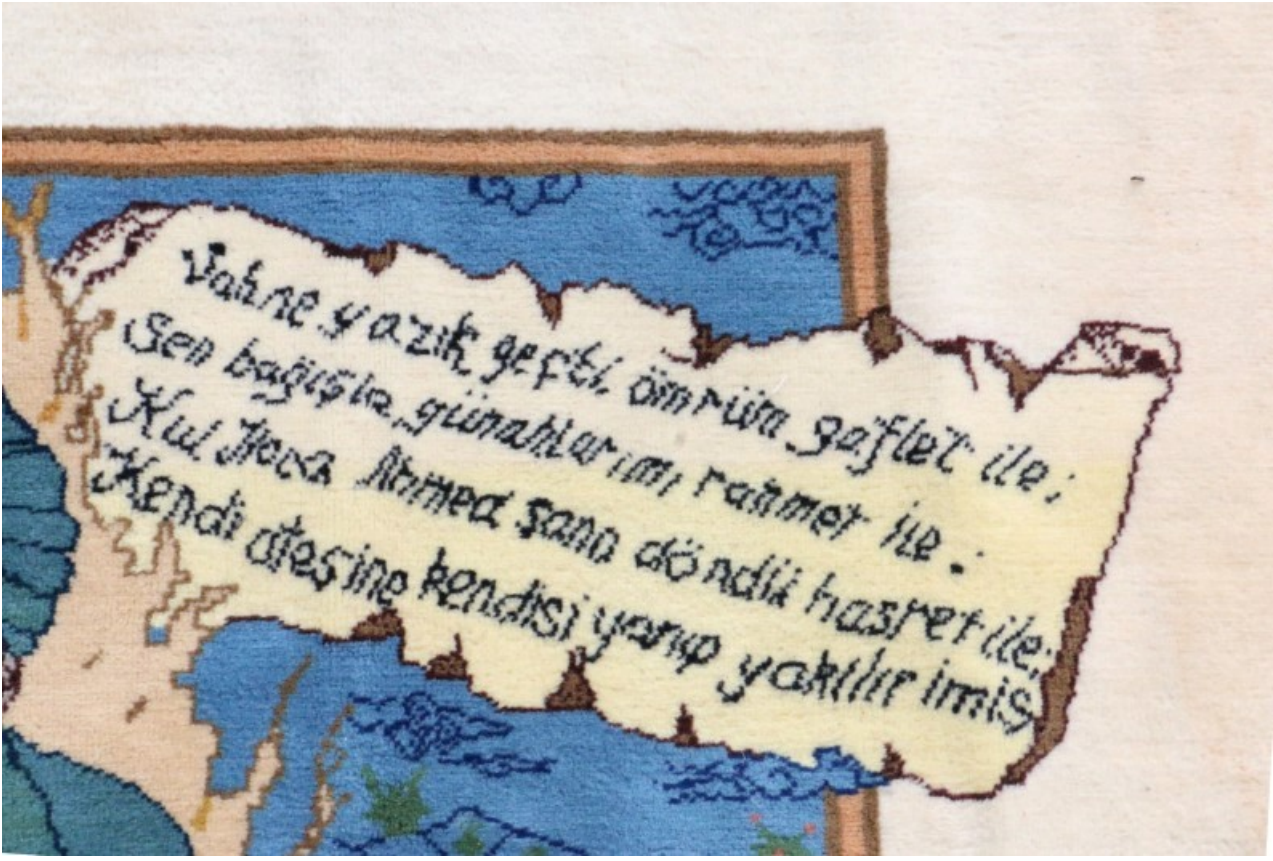 Vahne yazık geçti ömrüm gaflet ile;
Sen bağışla günahlarımı rahmet ile:
Kul Hoca Ahmed sana döndü hasret ile;
Kendi ateşine kendisi yanıp yakılır imiş